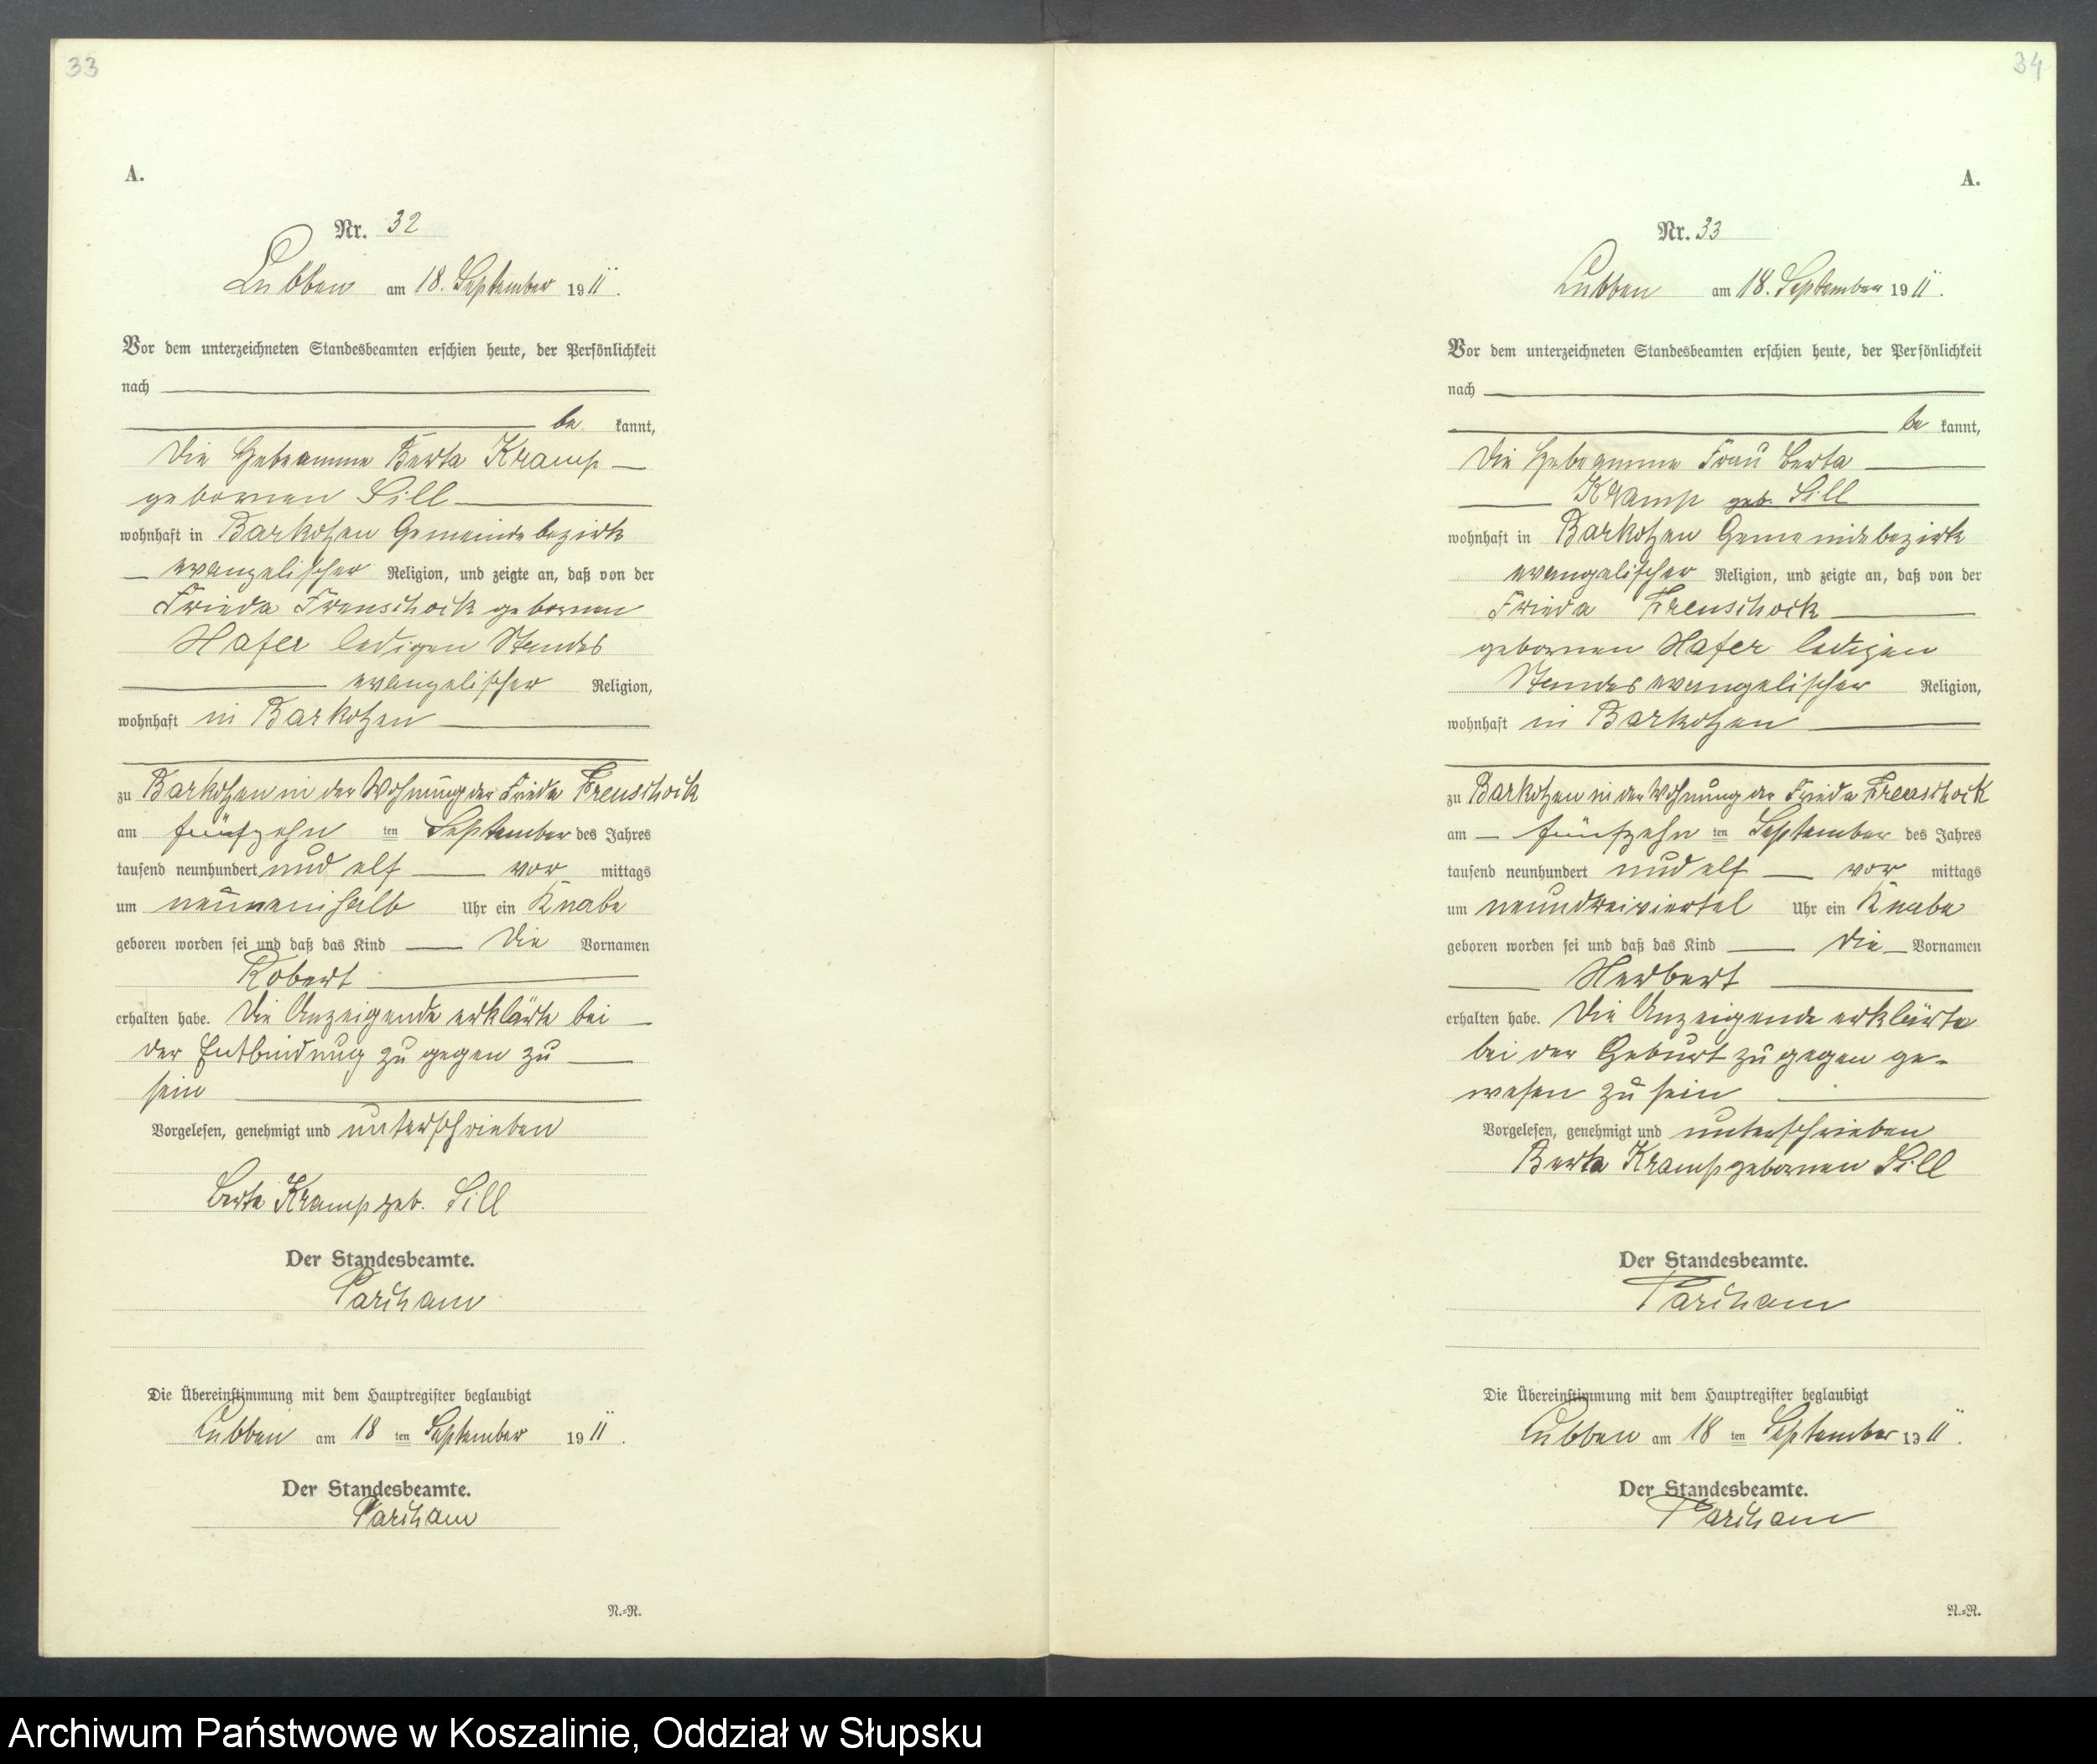 33
A.
Nr. 32
Lubben am 18. September 1911.
Vor dem unterzeichneten Standesbeamten erschien heute, der Persönlichkeit
nach
be kannt,
die Hebeamme Berta Kramp
gebornen Sill
wohnhaft in Barkotzen Gemeindebezirk
evangelischer Religion, und zeigte an, daß von der
Frieda Freuschock gebornen
Hafer ledigen Standes
evangelischer Religion,
wohnhaft in Barkotzen
zu Barkotzen in der Wohnung der Frieda Freuschock
am fünfzehn ten September des Jahres
tausend neunhundert und elf vor mittags
um neuneinhalb Uhr ein Knabe
geboren worden sei und daß das Kind die Vornamen
Robert
erhalten habe. Die Anzeigende erklärte bei
der Entbindung zugegen zu
sein
Vorgelesen, genehmigt und unterschrieben
Berta Kramp geb. Sill
Der Standesbeamte.
Parcham
Die Übereinstimmung mit dem Hauptregister beglaubigt
Lubben am 18 ten September 1911.
Der Standesbeamte.
Parcham
N.=R.
34
A.
Nr. 33
Lubben am 18. September 1911.
Vor dem unterzeichneten Standesbeamten erschien heute, der Persönlichkeit
nach
be kannt,
die Hebeamme Frau Berta
Kramp geb. Sill
wohnhaft in Barkotzen Gemeindebezirk
evangelischer Religion, und zeigte an, daß von der
Frieda Freuschock
gebornen Hafer ledigen
Standes evangelischer Religion,
wohnhaft in Barkotzen
zu Barkotzen in der Wohnung der Frieda Freuschock
am fünfzehn ten September des Jahres
tausend neunhundert und elf vor mittags
um neundreiviertel Uhr ein Knabe
geboren worden sei und daß das Kind die Vornamen
Herbert
erhalten habe. Die Anzeigende erklärte
bei der Geburt zugegen ge-
wesen zu sein
Vorgelesen, genehmigt und unterschrieben
Berta Kramp gebornen Sill
Der Standesbeamte.
Parcham
Die Übereinstimmung mit dem Hauptregister beglaubigt
Lubben am 18 ten September 1911.
Der Standesbeamte.
Parcham
N.=R.
Archiwum Państwowe w Koszalinie, Oddział w Słupsku